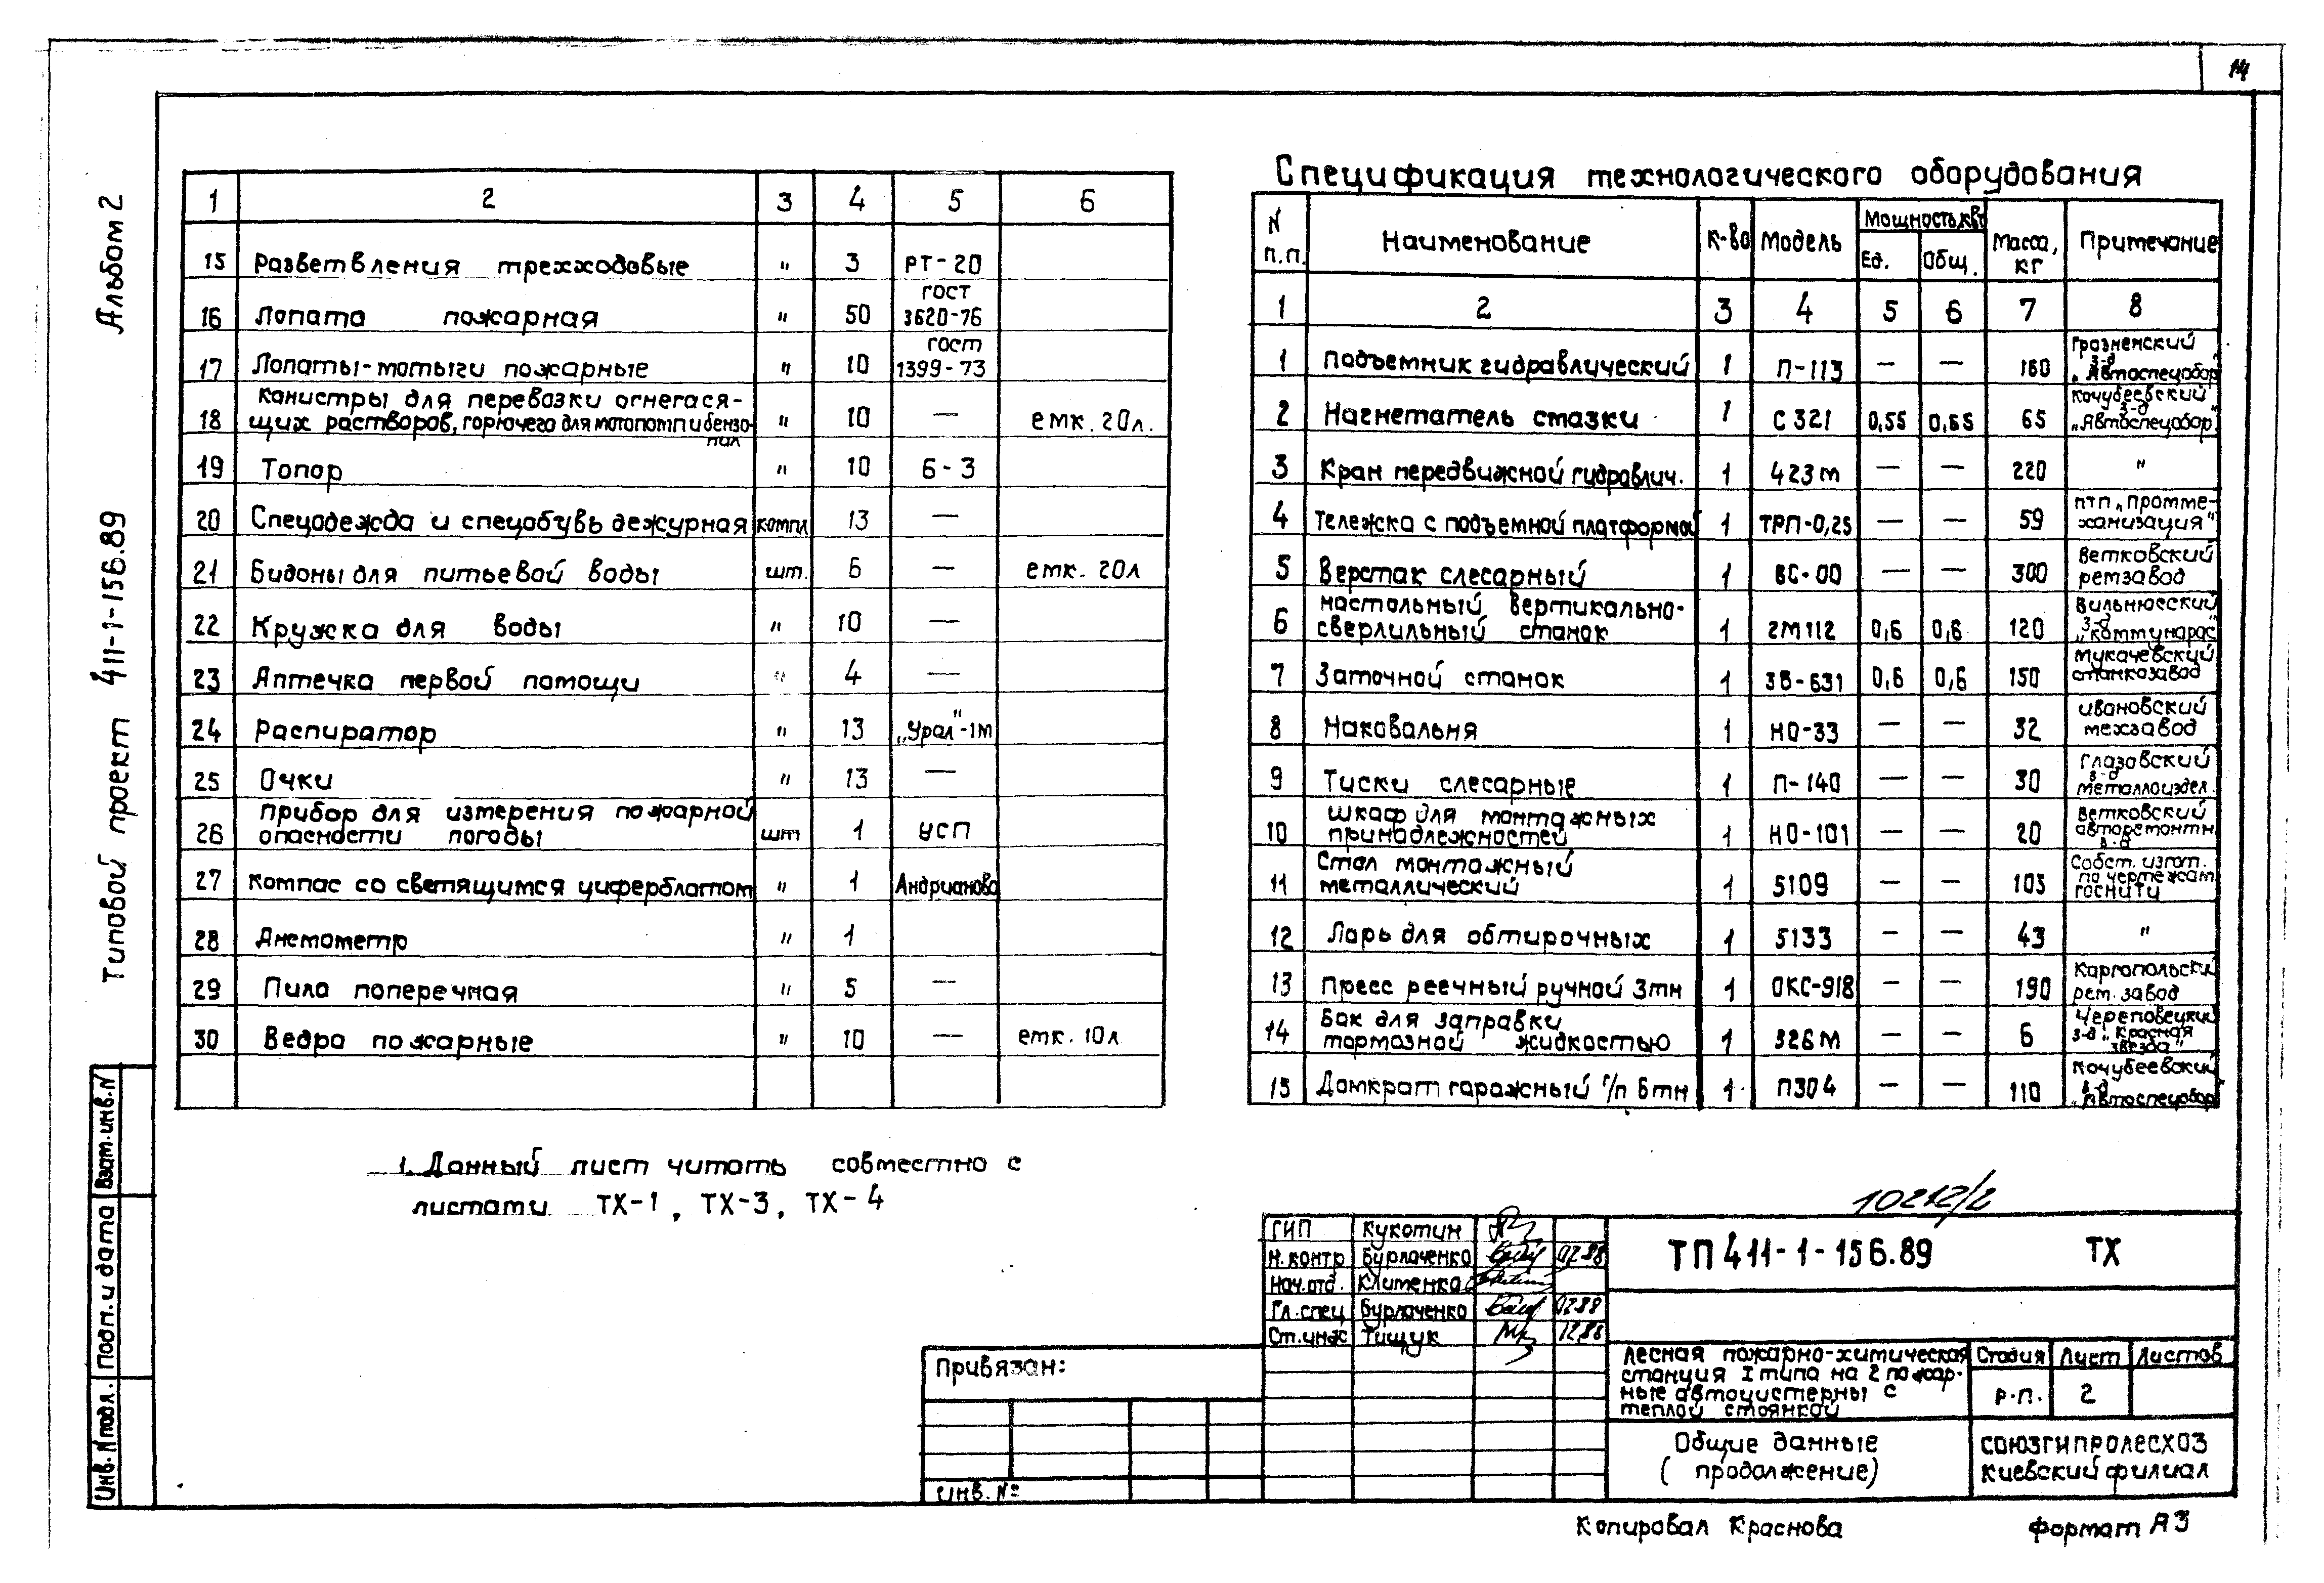 14
Альбом 2
Типовой проект 411-1-156.89
1 2 3 4 5 6
15 Разветвления трехходовые " 3 РТ-20
16 Лопата пожарная " 50 ГОСТ 3620-76
17 Лопаты-мотыги пожарные " 10 ГОСТ 1399-73
18 Канистры для перевозки огнегася-
щих растворов, горючего для мотопомп и бензо-
пил " 10 — емк. 20л.
19 Топор " 10 Б-3
20 Спецодежда и спецобувь дежурная компл 13 —
21 Бидоны для питьевой воды шт. 6 — емк. 20л
22 Кружка для воды " 10 —
23 Аптечка первой помощи " 4 —
24 Распиратор " 13 „Урал"-1М
25 Очки " 13 —
26 Прибор для измерения пожарной
опасности погоды шт 1 УСП
27 Компас со светящимся циферблатом " 1 Андрианова
28 Анемометр " 1
29 Пила поперечная " 5 —
30 Ведра пожарные " 10 — емк. 10л
1. Данный лист читать совместно с
листами ТХ-1, ТХ-3, ТХ-4
Спецификация технологического оборудования
N п.п. Наименование К-во Модель Мощность,кВт Ед. Общ. Масса, кг Примечание
1 2 3 4 5 6 7 8
1 Подъемник гидравлический 1 П-113 — — 160 Грозненский з-д „Автоспецобор"
2 Нагнетатель смазки 1 С 321 0,55 0,55 65 Кочубеевский з-д „Автоспецобор"
3 Кран передвижной гидравлич. 1 423м — — 220 "
4 Тележка с подъемной платформой 1 ТРП-0,25 — — 59 ПТП „Промме-
ханизация"
5 Верстак слесарный 1 ВС-00 — — 300 Ветковский ремзавод
6 Настольный вертикально-
сверлильный станок 1 2М112 0,6 0,6 120 Вильнюсский з-д „Коммунарас"
7 Заточной станок 1 3Б-631 0,6 0,6 150 Мукачевский станкозавод
8 Наковальня 1 НО-33 — — 32 Ивановский мехзавод
9 Тиски слесарные 1 П-140 — — 30 Глазовский з-д металлоиздел.
10 Шкаф для монтажных
принадлежностей 1 НО-101 — — 20 Ветковский авторемонтн. з-д
11 Стол монтажный
металлический 1 5109 — — 103 Собст. изгот. по чертежам ГОСНИТИ
12 Ларь для обтирочных 1 5133 — — 43 "
13 Пресс реечный ручной 3тн 1 ОКС-918 — — 190 Каргопольский рем. завод
14 Бак для заправки
тормозной жидкостью 1 326М — — 6 Череповецкий з-д „Красная звезда"
15 Домкрат гаражный г/п 6тн 1 П304 — — 110 Кочубеевский з-д „Автоспецобор"
10212/2
ГИП Кукотин
Н.контр Бурлаченко 02.88
Нач.отд. Клименко
Гл.спец Бурлаченко 02.88
Ст.инж Тищук 12.88
ТП 411-1-156.89 ТХ
Лесная пожарно-химическая
станция I типа на 2 пожар-
ные автоцистерны с
теплой стоянкой
Стадия Лист Листов
Р.П. 2
Общие данные
(продолжение)
СОЮЗГИПРОЛЕСХОЗ
Киевский филиал
Привязан:
Инв. №
Взам.инв.N
Подп. и дата
Инв.N подл.
Копировал Краснова
Формат А3